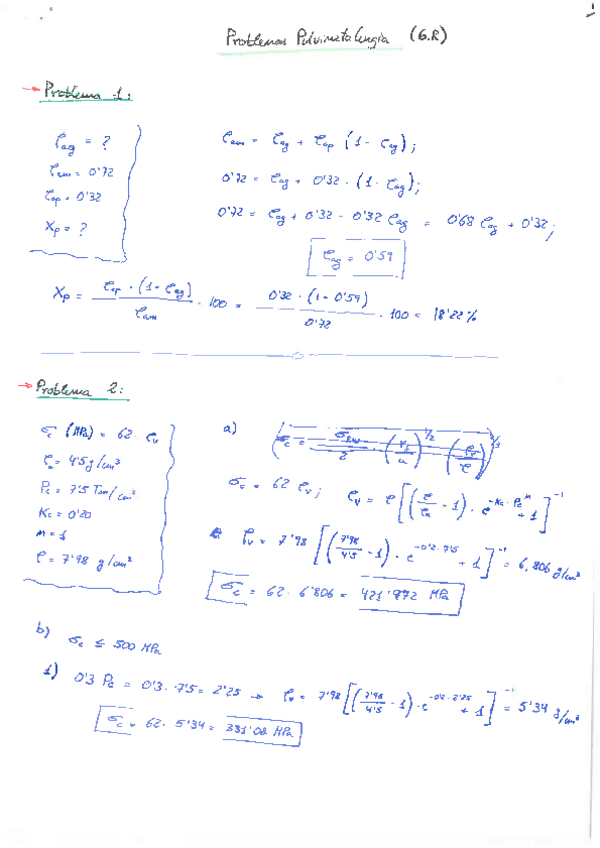 Problemas Pulvimetalurgia (G.R)
1
→ Problema 1:
ρag = ?
ρam = 0'72
ρap = 0'32
Xp = ?
ρam = ρag + ρap (1 - ρag);
0'72 = ρag + 0'32 · (1 - ρag);
0'72 = ρag + 0'32 - 0'32 ρag = 0'68 ρag + 0'32;
ρag = 0'59
Xp = ρap · (1 - ρag) / ρam · 100 = 0'32 · (1 - 0'59) / 0'72 · 100 = 18'22%
→ Problema 2:
σc (MPa) = 62 · ρv
ρa = 4'5 g/cm³
Pc = 7'5 Tm/cm²
Kc = 0'20
m = 1
ρ = 7'98 g/cm³
a)
σc = 62 ρv; ρv = ρ [(ρ/ρa - 1) · e^(-Kc · Pc^m) + 1]^-1
ρv = 7'98 [(7'98/4'5 - 1) · e^(-0'2 · 7'5) + 1]^-1 = 6,806 g/cm³
σc = 62 · 6'806 = 421'972 MPa
b) σc ≤ 500 MPa
1) 0'3 Pc = 0'3 · 7'5 = 2'25 → ρv = 7'98 [(7'98/4'5 - 1) · e^(-0'2 · 2'25) + 1]^-1 = 5'34 g/cm³
σc = 62 · 5'34 = 331'08 MPa